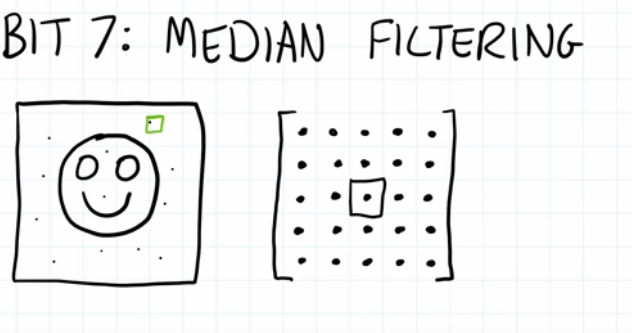 BIT 7: MEDIAN FILTERING